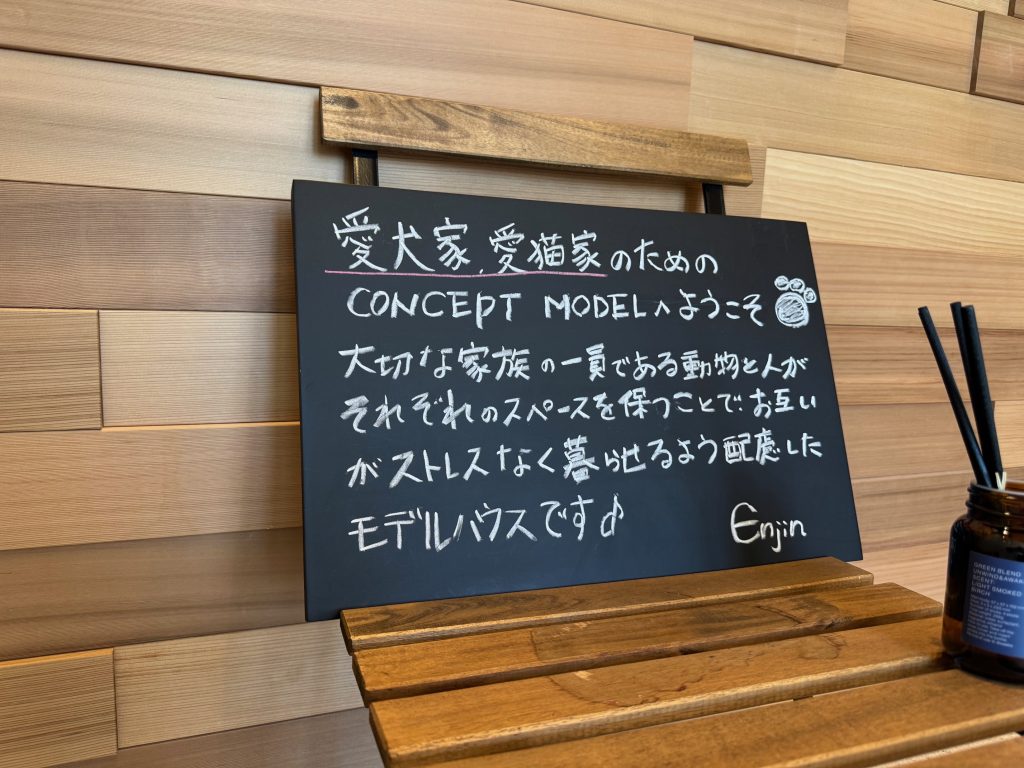 愛犬家、愛猫家のための
CONCEPT MODELへようこそ
大切な家族の一員である動物と人が
それぞれのスペースを保つことで、お互い
がストレスなく暮らせるよう配慮した
モデルハウスです♪
Enjin
GREEN BLEND
UNWIND&AWAK
SCENT
LIGHT SMOKED
BIRCH